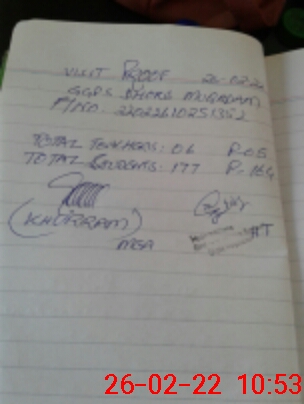 VISIT PROOF 26-02-22
GGPS KHORE MUGHLAM
P/NO. 22022610251352
TOTAL TEACHERS: 06 P-05
TOTAL STUDENTS: 177 P-164
(KHURRAM)
MEA
HT
26-02-22 10:53